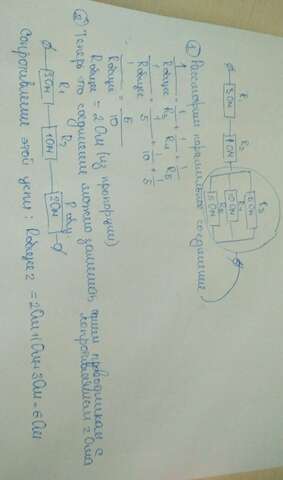 R₁ R₂ R₃
3 Ом 1 Ом 5 Ом
10 Ом R₄
5 Ом R₅
① Рассмотрим параллельное соединение
1/Rобщее = 1/R₃ + 1/R₄ + 1/R₅
1/Rобщее = 1/5 + 1/10 + 1/5
1/Rобщее = 5/10
Rобщее = 2 Ом (из пропорции)
② Теперь это соединение можно заменить одним проводником с
сопротивлением 2 Ома
R₁ R₂ Rобщ
3 Ом 1 Ом 2 Ом
Сопротивление этой цепи: Rобщее₂ = 2 Ом + 1 Ом + 3 Ом = 6 Ом